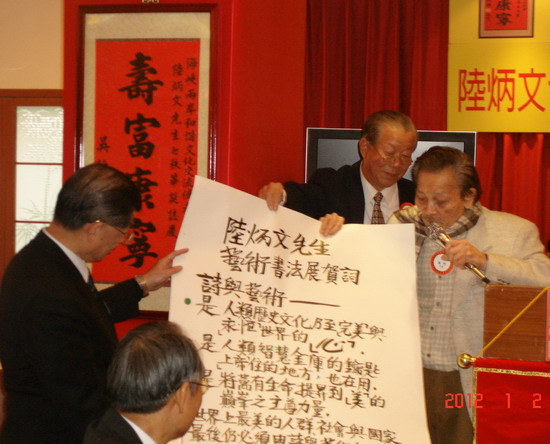 康寧
陸炳文
海峽兩岸和諧文化交流協
陸炳文先生七秩華誕誌慶
壽富康寧
吳
陸炳文先生
藝術書法展賀詞
詩與藝術——
是人類歷史文化乃至完美與
永恆世界的「心」。
是人類智慧金庫的鑰匙
「存在的地方」也在用
是將萬有生命提昇到「美」的
巔峯之主導力量.
世界上最美的人群社會與國家
最後仍必須由詩與藝
2012 1 2